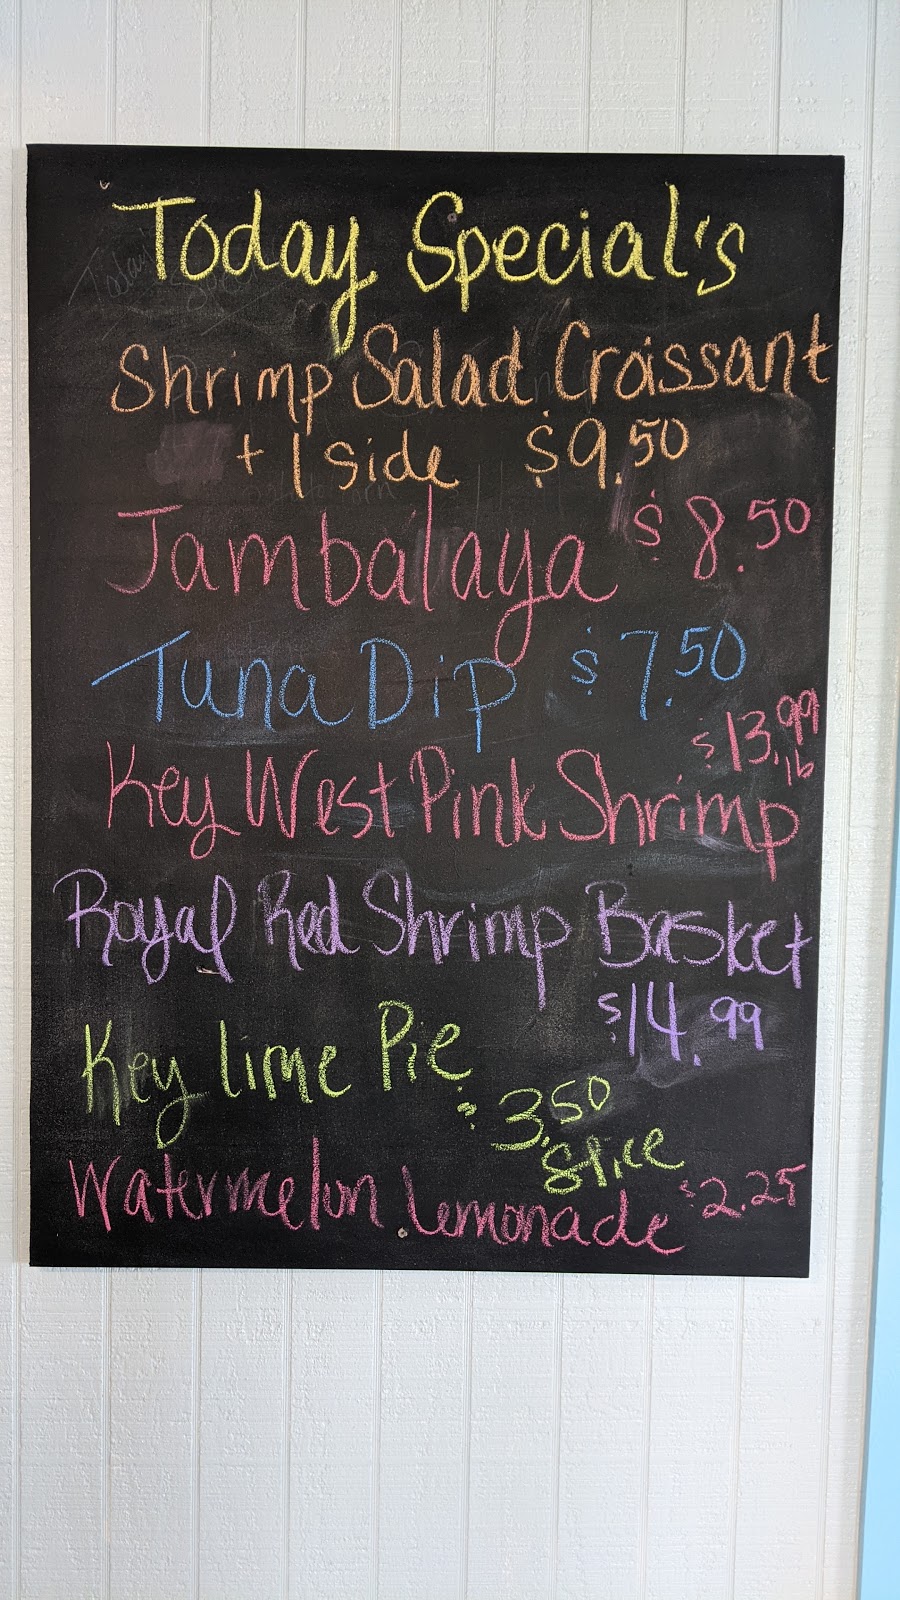 Today Special's
Shrimp Salad Croissant
+ 1 side $9.50
Jambalaya $8.50
Tuna Dip $7.50
$13.99 lb
Key West Pink Shrimp
Royal Red Shrimp Basket
$14.99
Key lime Pie
$3.50
Slice
Watermelon Lemonade $2.25